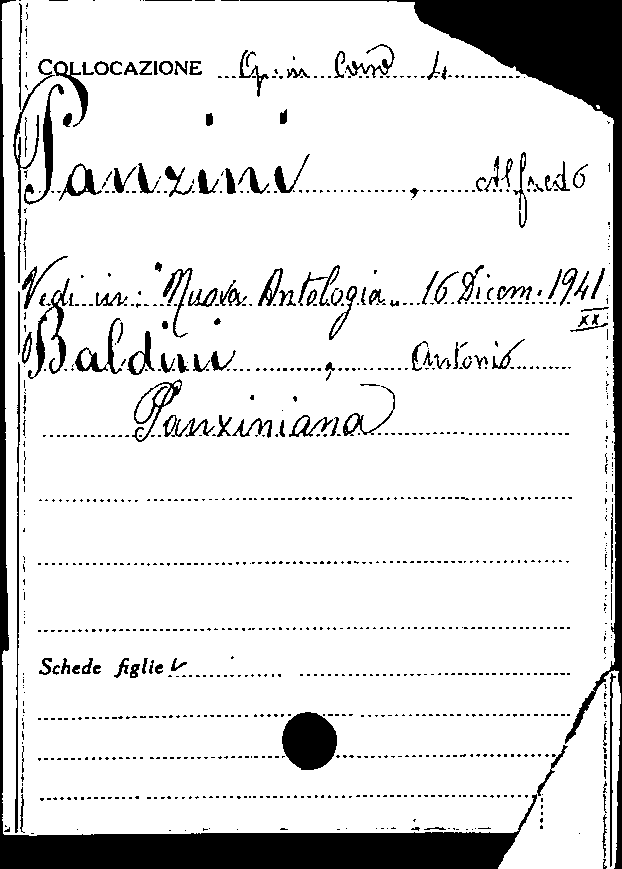 COLLOCAZIONE Op. in Corso 4
Panzini, Alfredo
Vedi in: "Nuova Antologia" 16 Dicem. 1941
XX
Baldini, Antonio
Panziniana
Schede figlie